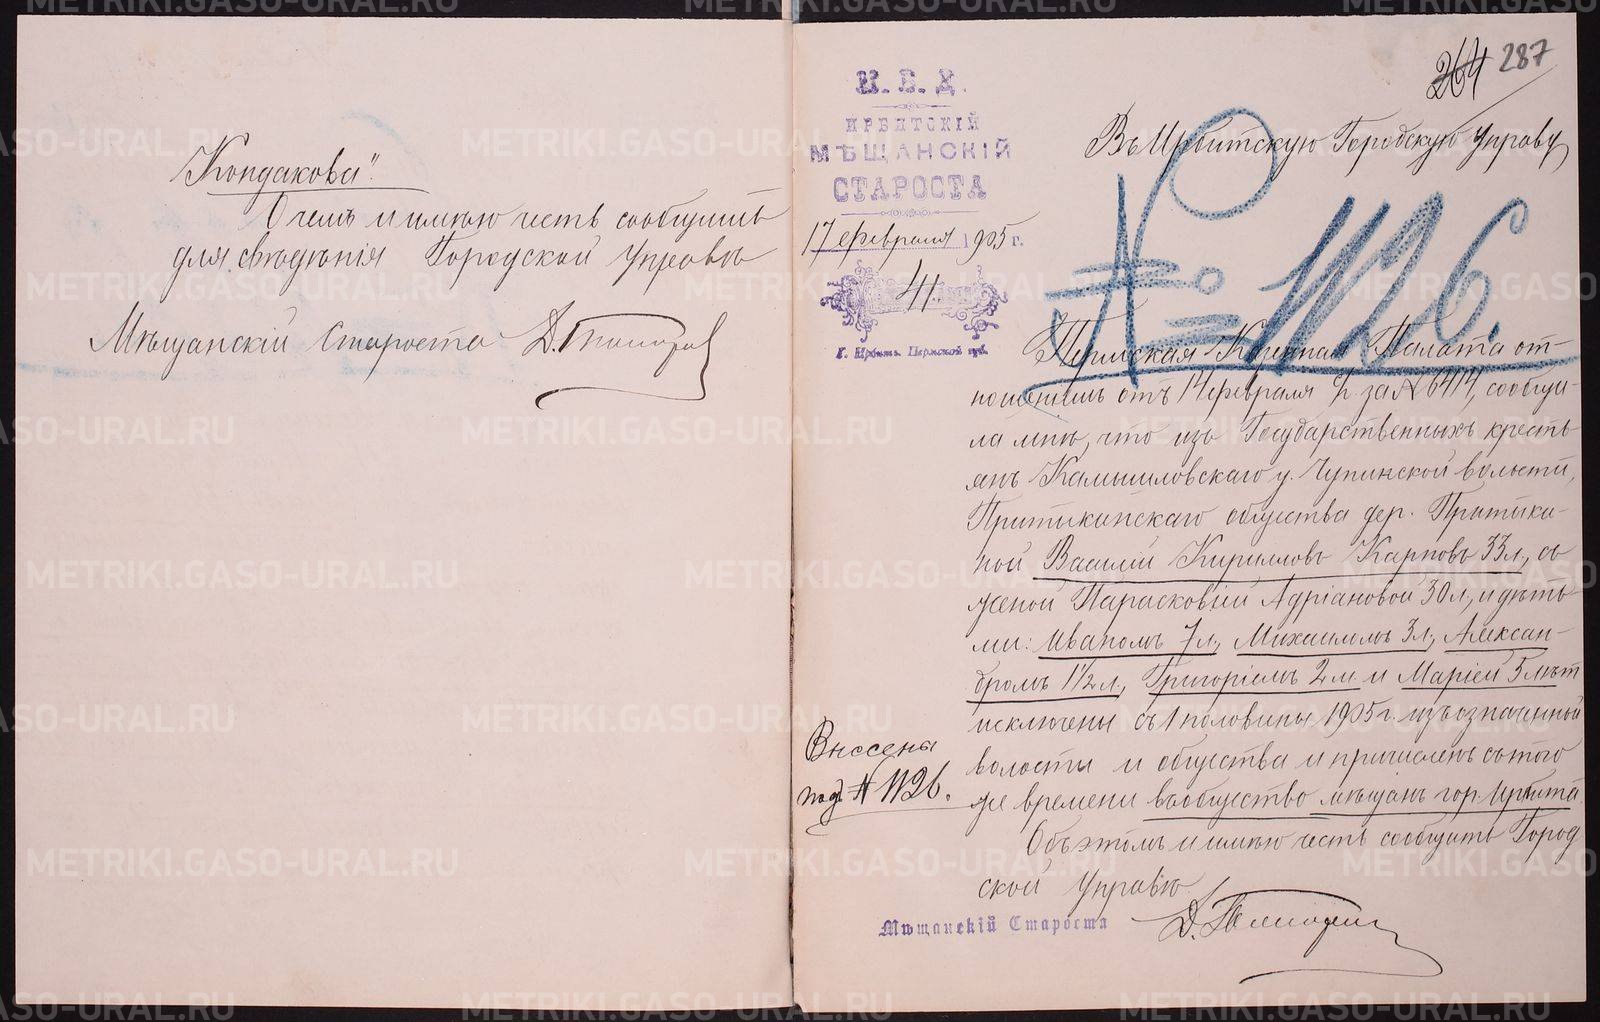 Кондакова".
О чемъ и имѣю честь сообщить
для свѣдѣнія Городской Управѣ
Мѣщанскій Староста
264 287
М. В. Д.
ИРБИТСКІЙ
МѢЩАНСКІЙ
СТАРОСТА
17 февраля 1905 г.
41
Г. Ирбить Пермской губ.
Въ Ирбитскую Городскую Управу
№ 1126.
Пермская Казенная Палата от-
ношеніемъ отъ 14 февраля за № 6414, сообщи-
ла мнѣ, что изъ Государственныхъ кресть-
янъ Камышловскаго у. Чупинской волости,
Притыкинскаго общества дер. Притыки-
ной Василій Кирилловъ Карповъ 33 л., съ
женой Парасковьей Адріановой 30 л., и дѣть-
ми: Иваномъ 7 л., Михаиломъ 3 л., Алексан-
дромъ 1½ л., Григоріемъ 2 м. и Маріей 5 лѣт
исключены съ 1 половины 1905 г. изъ означенной
волости и общества и причисленъ съ того
же времени въ общество мѣщанъ гор. Ирбита.
Объ этомъ и имѣю честь сообщить Город
ской Управѣ
Мѣщанскій Староста
Внесены
подъ № 1126.
METRIKI.GASO-URAL.RU